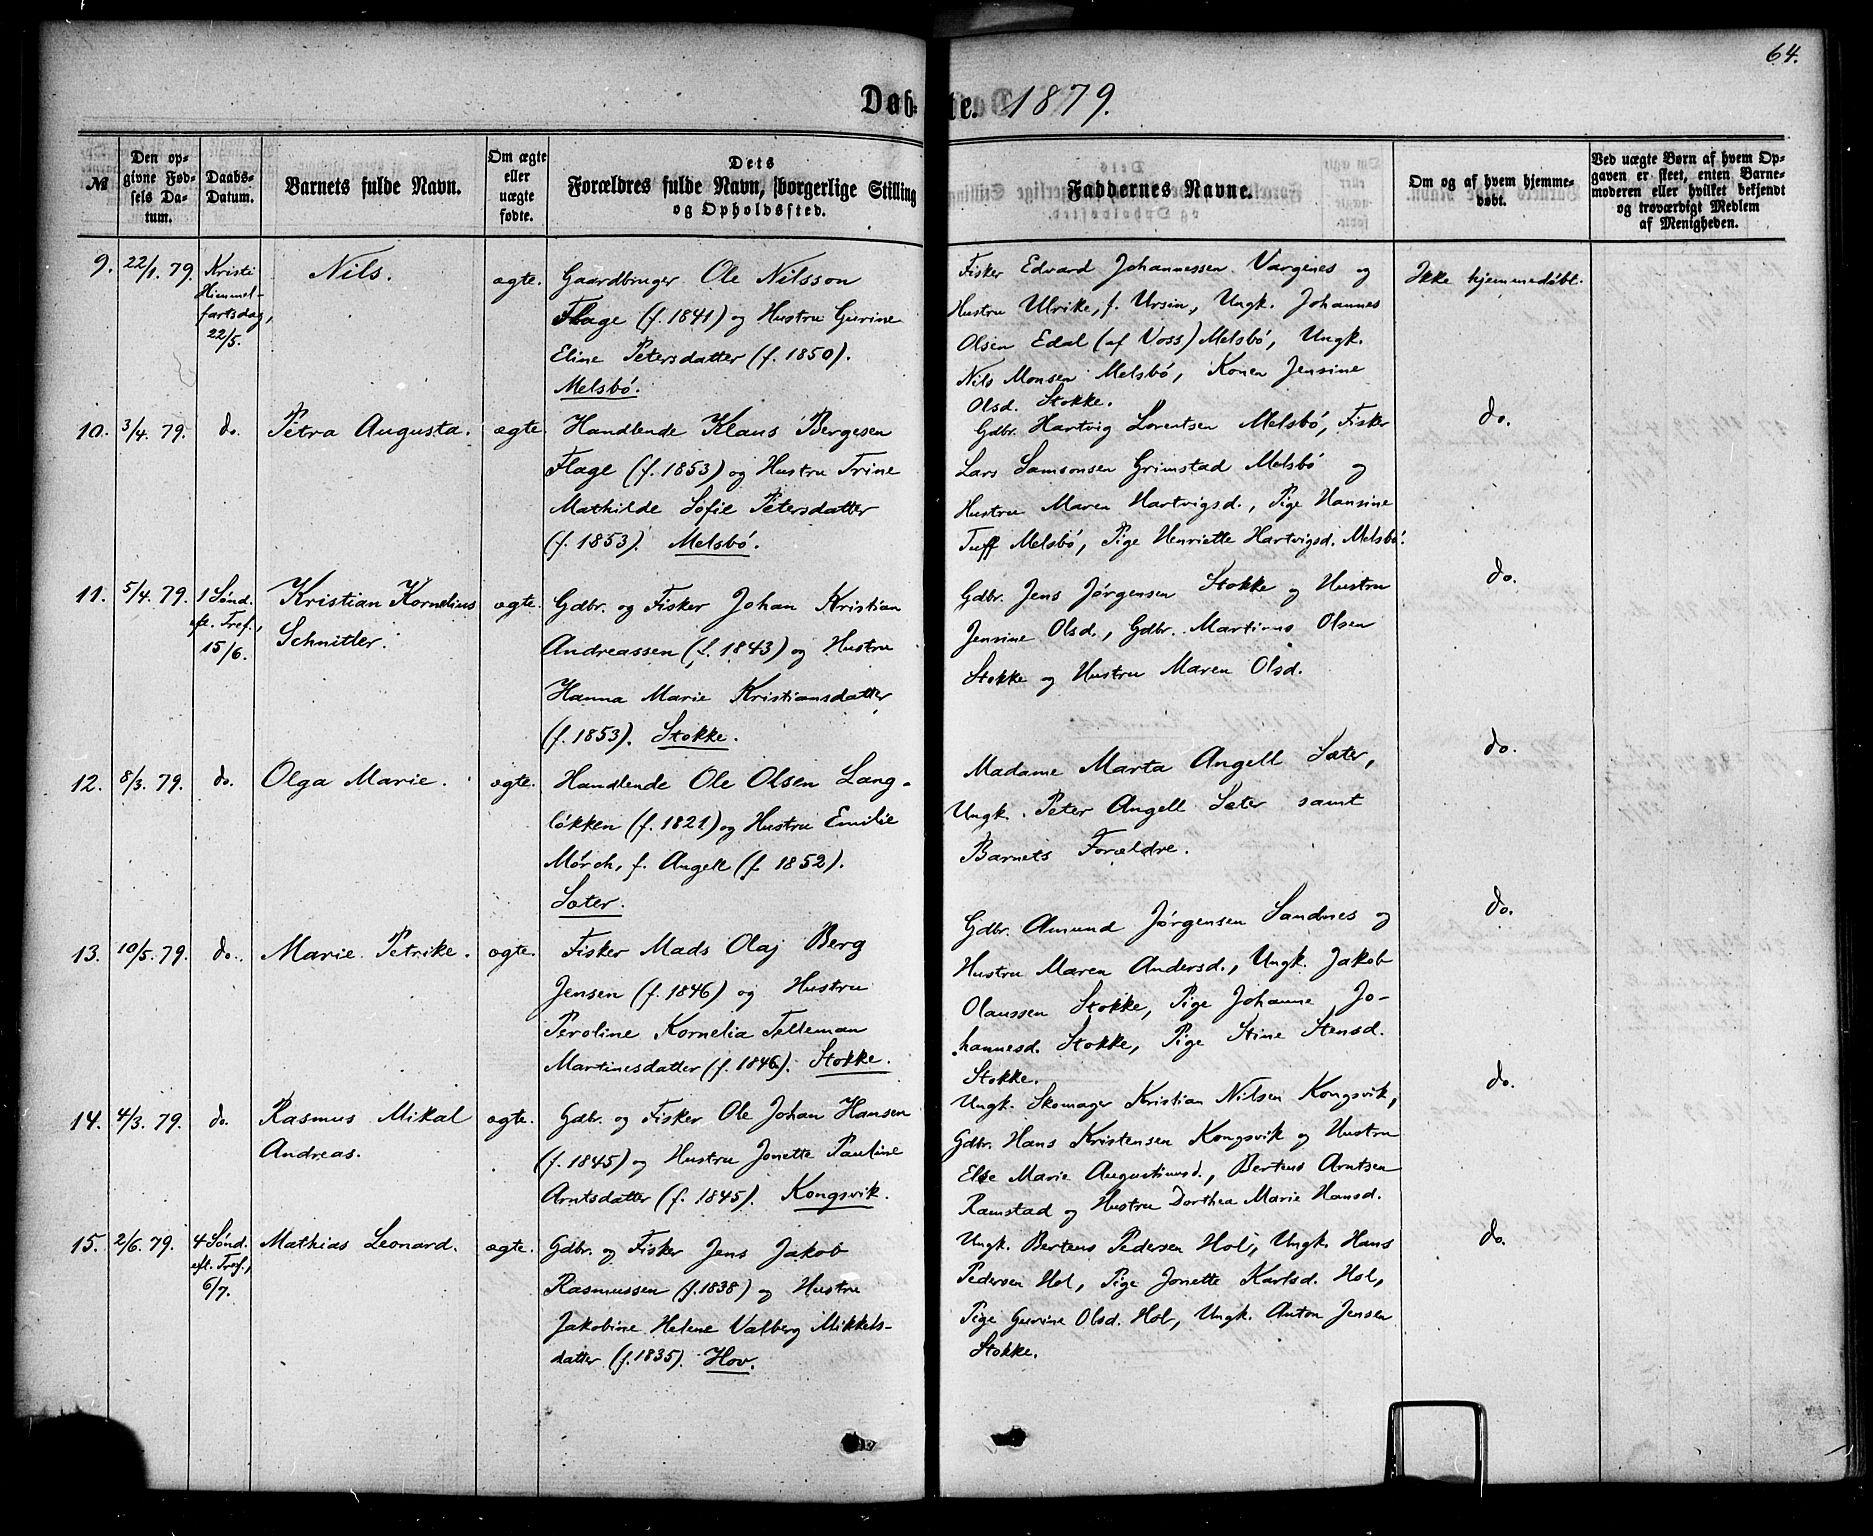 64.
Døbte. 1879.
№ | Den opgivne Fødsels Datum. | Daabs-Datum. | Barnets fulde Navn. | Om ægte eller uægte fødte. | Dets Forældres fulde Navn, borgerlige Stilling og Opholdssted. | Faddernes Navne. | Om og af hvem hjemmedøbt. | Ved uægte Børn af hvem Opgaven er skeet, enten Barnemoderen eller hvilket bekjendt og troværdigt Medlem af Menigheden.
9. 22/1. 79. Kristi Himmelfartsdag, 22/5. Nils. ægte.
Gaardbruger Ole Nilsson
Flage (f. 1841) og Hustru Gurine
Eline Petersdatter (f. 1850).
Melsbö.
Fisker Edvard Johannessen Vargenes og
Hustru Ulrike, f. Ursin, Ungk. Johannes
Olsen Edal (af Voss) Melsbö, Ungk.
Nils Monsen Melsbö, Konen Jensine
Olsd. Stokke.
Ikke hjemmedöbt.
10. 3/4. 79. do. Petra Augusta. ægte.
Handlende Klaus Bergesen
Flage (f. 1853) og Hustru Trine
Mathilde Sofie Petersdatter
(f. 1853). Melsbö.
Gdbr. Hartvig Lorentsen Melsbö, Fisker
Lars Samsonsen Grimstad Melsbö og
Hustru Maren Hartvigsd., Pige Hansine
Tuff Melsbö, Pige Henriette Hartvigsd. Melsbö.
do.
11. 5/4. 79. 1 Sønd. eft. Tref., 15/6. Kristian Kornelius
Schnitler. ægte.
Gdbr. og Fisker Johan Kristian
Andreassen (f. 1843) og Hustru
Hanna Marie Kristiansdatter
(f. 1853). Stokke.
Gdbr. Jens Jörgensen Stokke og Hustru
Jensine Olsd., Gdbr. Martinus Olsen
Stokke og Hustru Maren Olsd.
do.
12. 8/3. 79. do. Olga Marie. ægte.
Handlende Ole Olsen Lang-
lökken (f. 1821) og Hustru Emilie
Mörch, f. Angell (f. 1852).
Sæter.
Madame Marta Angell Sæter,
Ungk. Peter Angell Sæter samt
Barnets Forældre.
do.
13. 10/5. 79. do. Marie Petrike. ægte.
Fisker Mads Olaj Berg
Jensen (f. 1846) og Hustru
Peroline Kornelia Telleman
Martinesdatter (f. 1846). Stokke.
Gdbr. Amund Jörgensen Sandnes og
Hustru Maren Andersd., Ungk. Jakob
Olaussen Stokke, Pige Johanne Jo-
hannesd. Stokke, Pige Stine Stensd.
Stokke.
do.
14. 4/3. 79. do. Rasmus Mikal
Andreas. ægte.
Gdbr. og Fisker Ole Johan Hansen
(f. 1845) og Hustru Jonette Pauline
Arntsdatter (f. 1845). Kongsvik.
Ungk. Skomager Kristian Nilsen Kongsvik,
Gdbr. Hans Kristensen Kongsvik og Hustru
Else Marie Augustinusd., Bertens Arntsen
Ramstad og Hustru Dorthea Marie Hansd.
do.
15. 2/6. 79. 4 Sønd. eft. Tref., 6/7. Mathias Leonard. ægte.
Gdbr. og Fisker Jens Jakob
Rasmussen (f. 1838) og Hustru
Jakobine Helene Valberg Mikkels-
datter (f. 1835). Hov.
Ungk. Bertens Pedersen Hol, Ungk. Hans
Pedersen Hol, Pige Jonette Karlsd. Hol,
Pige Gurine Olsd. Hol, Ungk. Anton Jensen
Stokke.
do.